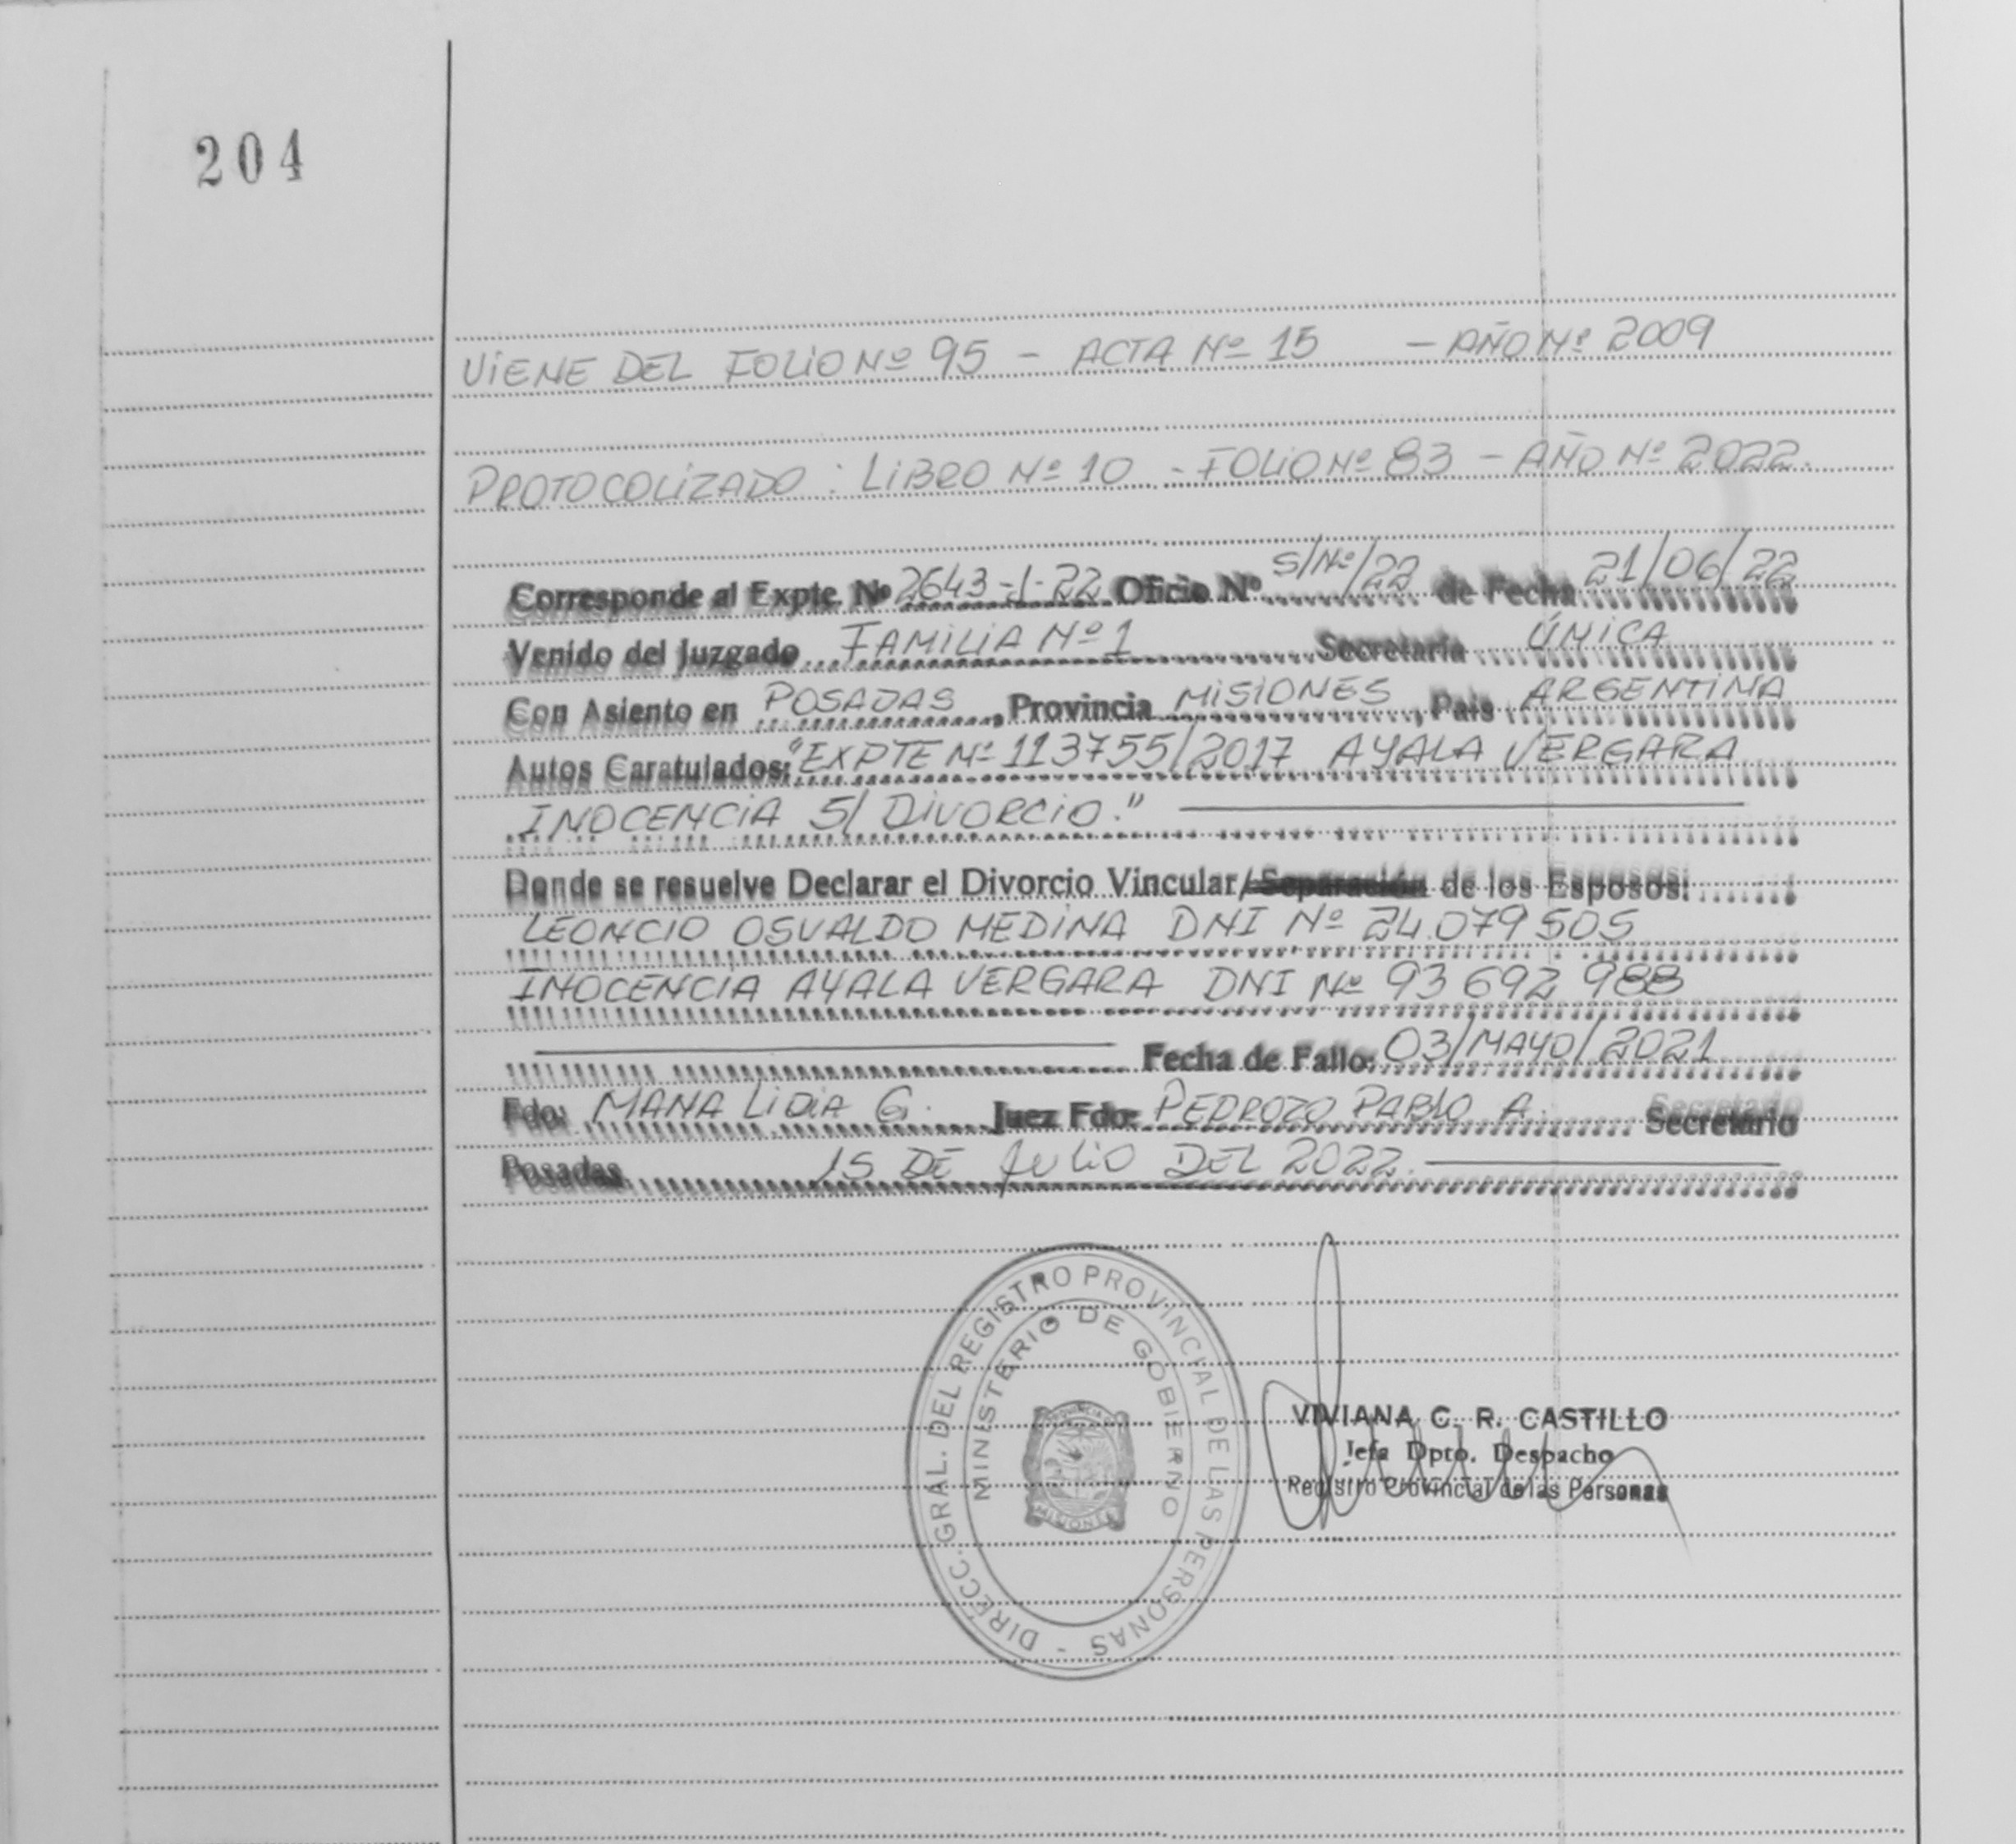 204
VIENE DEL FOLIO Nº 95 - ACTA Nº 15 - AÑO Nº 2009
PROTOCOLIZADO : LIBRO Nº 10 - FOLIO Nº 83 - AÑO Nº 2022.
Corresponde al Expte. Nº 2643-J-22 Oficio Nº S/Nº/22 de Fecha 21/06/22
Venido del Juzgado FAMILIA Nº 1 Secretaría ÚNICA
Con Asiento en POSADAS, Provincia MISIONES, País ARGENTINA
Autos Caratulados: "EXPTE Nº 113755/2017 AYALA VERGARA
INOCENCIA S/ DIVORCIO."
Donde se resuelve Declarar el Divorcio Vincular/Separación de los Esposos:
LEONCIO OSVALDO MEDINA DNI Nº 24.079505
INOCENCIA AYALA VERGARA DNI Nº 93 692 988
Fecha de Fallo: 03/MAYO/2021
Fdo: MANA LIDIA G. Juez Fdo: PEDROZO PABLO A. Secretario
Posadas 15 DE JULIO DEL 2022.
DIRECC. GRAL. DEL REGISTRO PROVINCIAL DE LAS PERSONAS -
MINISTERIO DE GOBIERNO
PROVINCIA DE
MISIONES
VIVIANA C. R. CASTILLO
Jefa Dpto. Despacho
Registro Provincial de las Personas